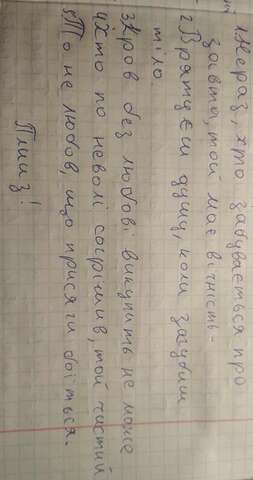 1Нераз, хто забувається про
завтра, той має вічність-
2 Врятуєш душу, коли загубиш
тіло
3Кров без любові викупить не може
4Хто по неволі согрішив, той чистий
5То не любов, що присяги боїться.
Плиз!